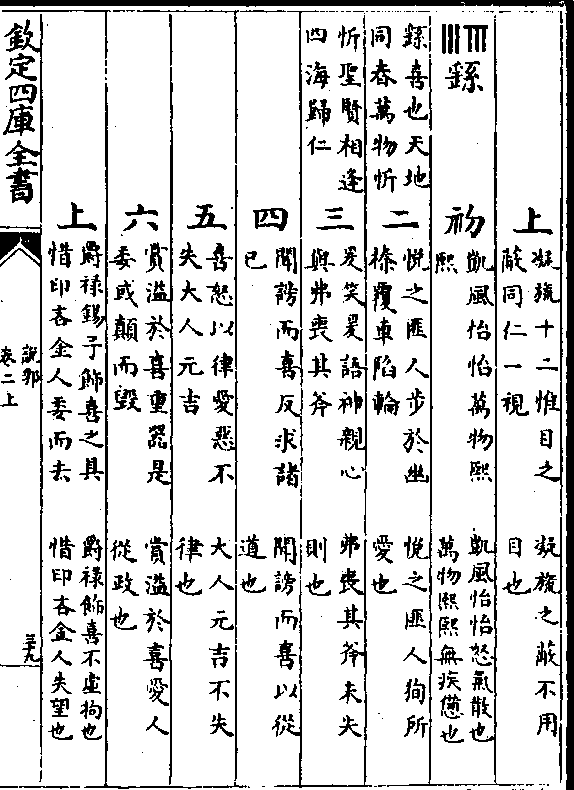 上
凝旒十二惟目之
蔽同仁一視
凝旒之蔽不用
目也
繇
初
凱風怡怡萬物熙
熙
凱風怡怡怒氣散也
萬物熙熙無疾也
繇喜也天地
同春萬物忻
忻聖賢相逢
四海歸仁
二
悅之匪人步於幽
榛覆車陷輪
悅之匪人狥所
愛也
三
爰笑爰語神親心
與弗喪其斧
弗喪其斧未失
則也
四
聞謗而喜反求諸
已
聞謗而喜以從
道也
五
喜怒以律愛惡不
失大人元吉
大人元吉不失
律也
六
賞溢於喜重器是
委或顛而毀
賞溢於喜愛人
從政也
上
爵祿錫予飾喜之具
惜印吝金人委而去
爵祿飾喜不虛拘也
惜印吝金人失望也
欽定四庫全書
說郛
卷二上
三十九